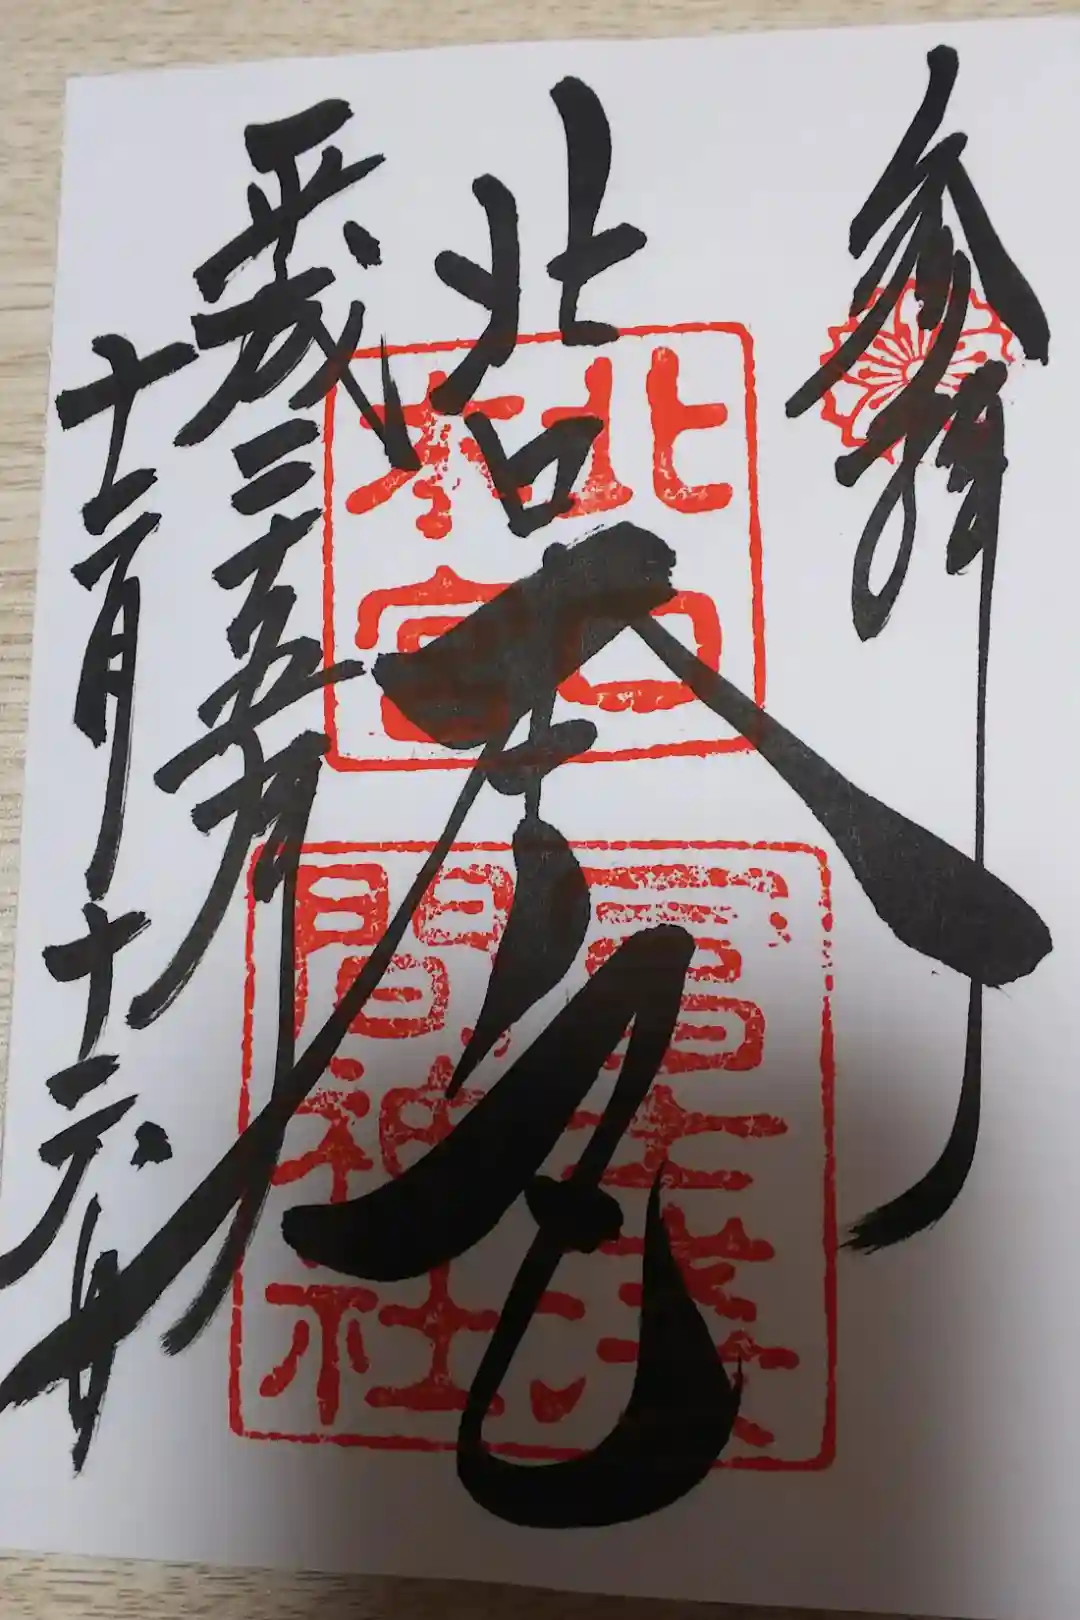 参拝
北口本宮
平成二十五年
十二月十六日
北口
本宮
冨士淺
間神社